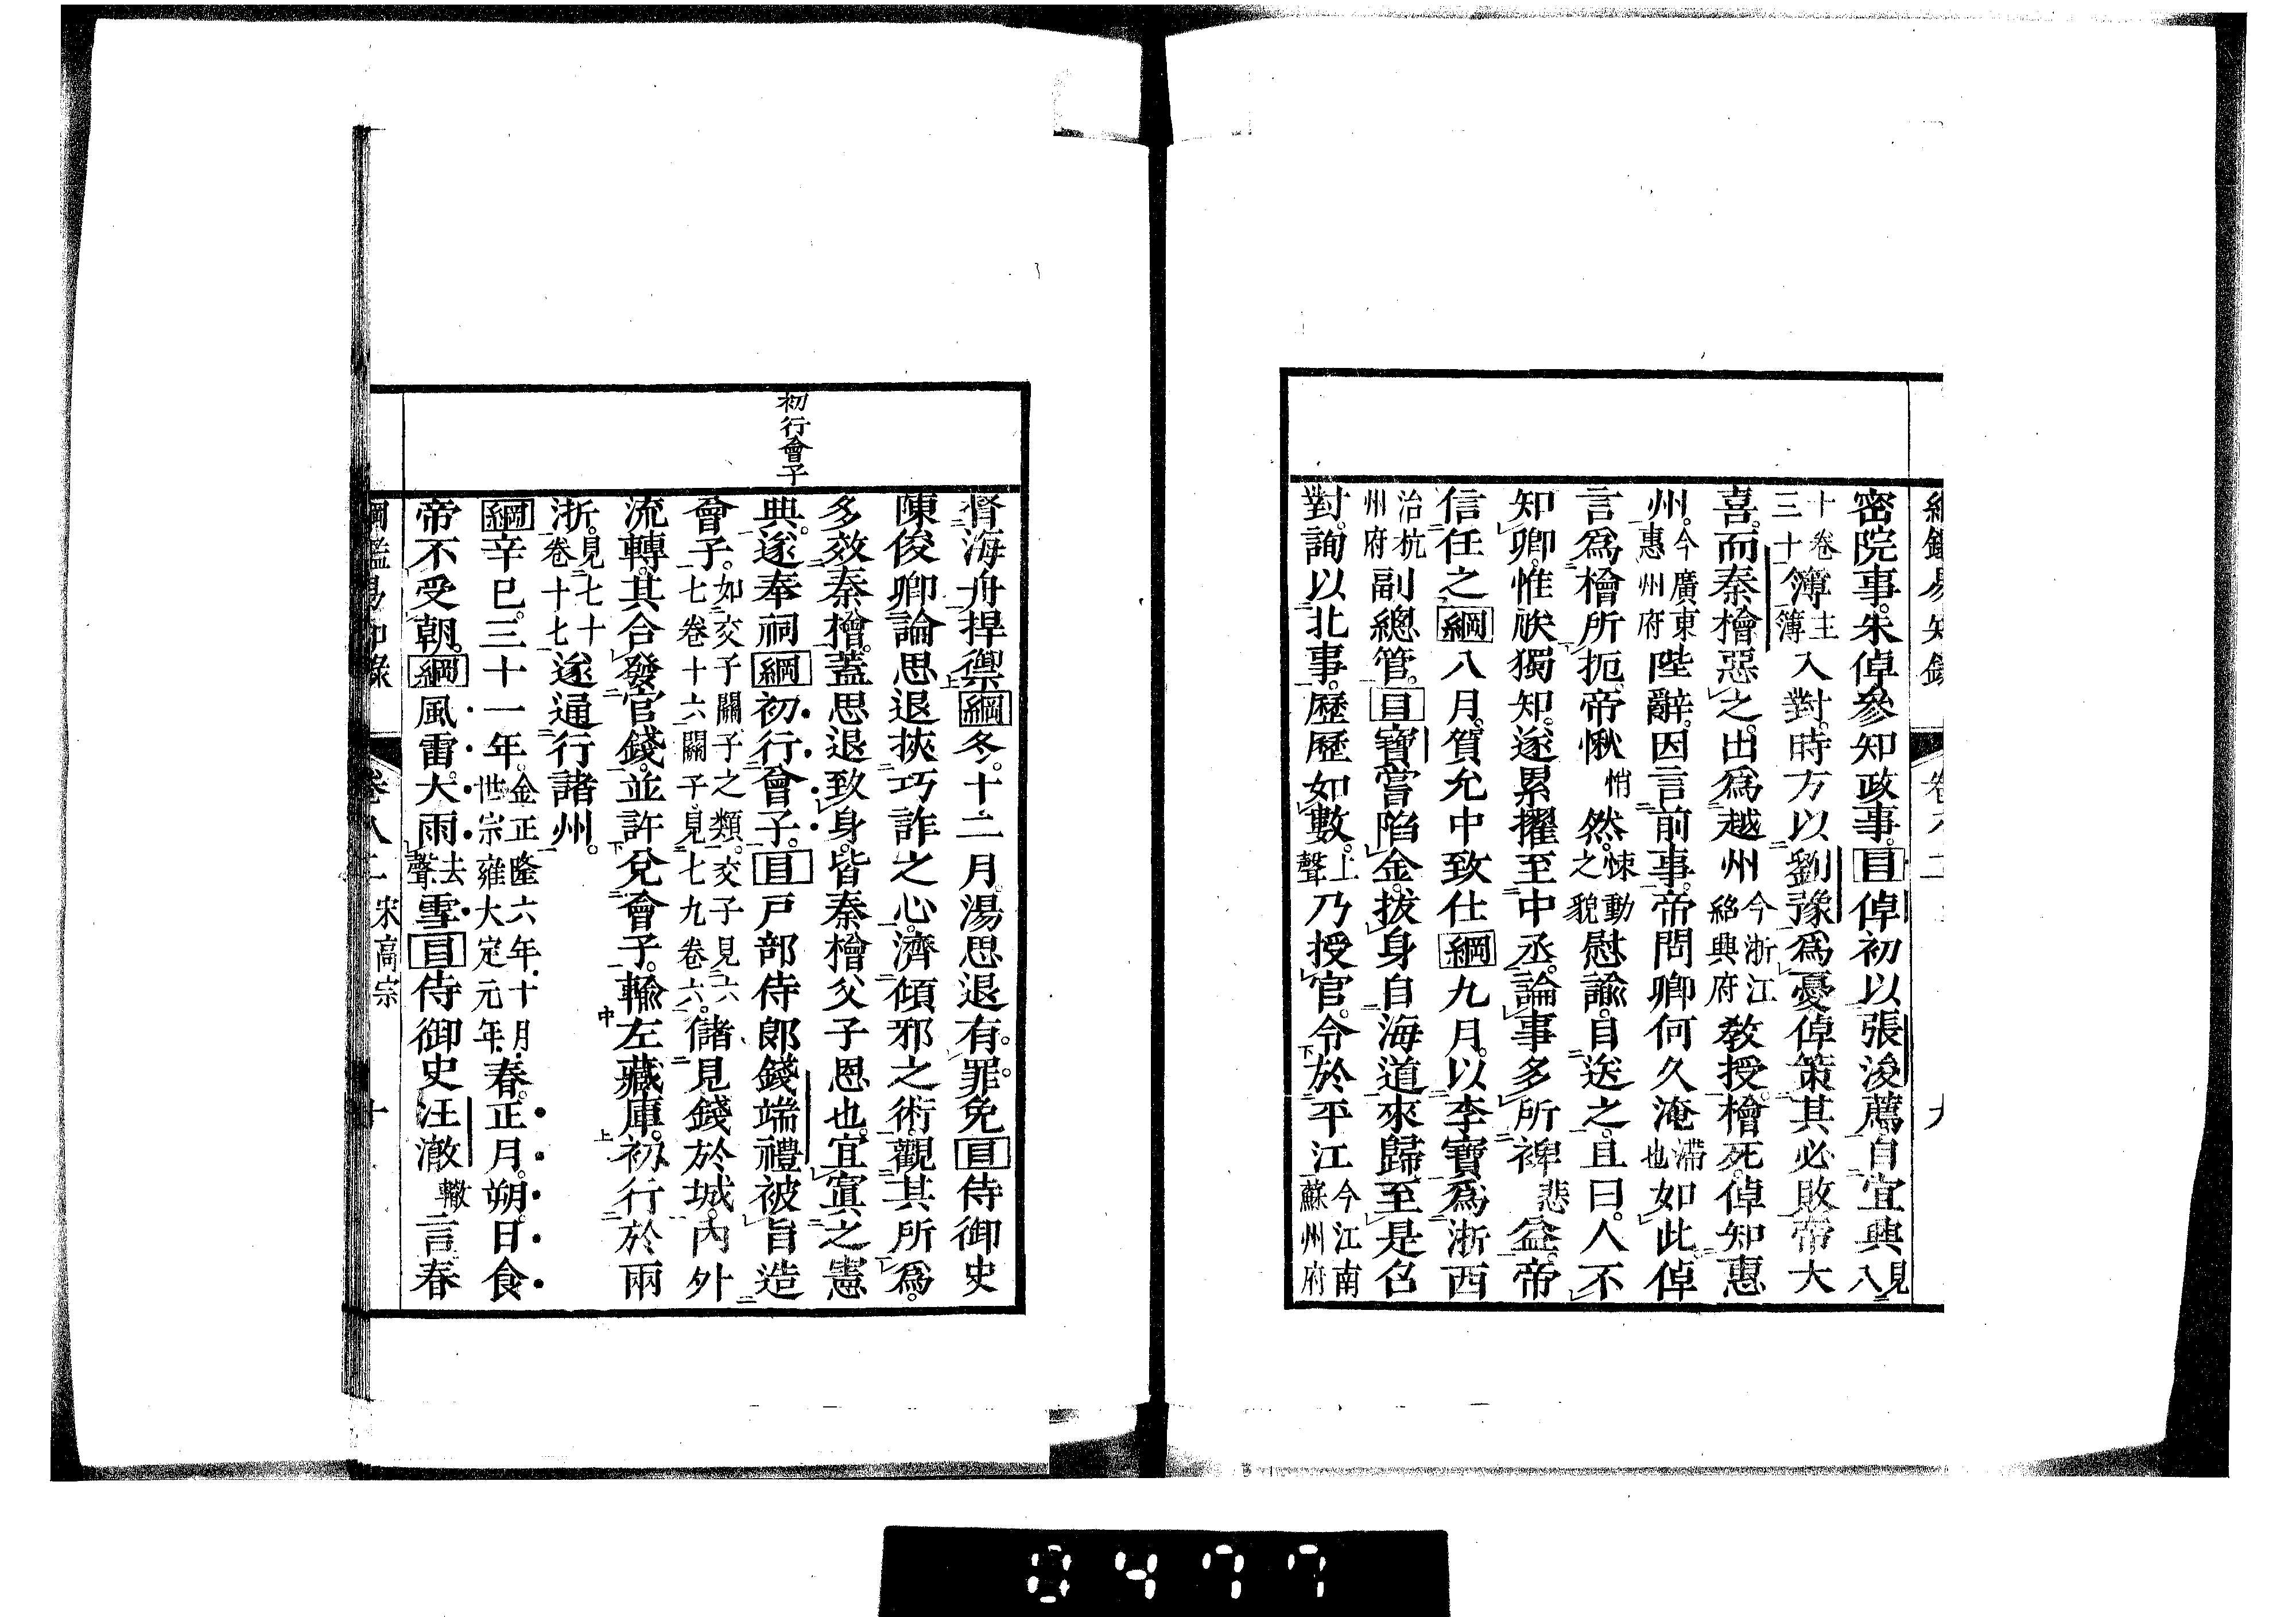 密院事。朱倬參知政事。目倬初以張浚薦。自宜興見八
十卷三十簿主簿入對。時方以劉豫爲憂。倬策其必敗。帝大
喜。而秦檜惡之。出爲越州今浙江紹興府教授。檜死。倬知惠
州。今廣東惠州府陛辭。因言前事。帝問卿何久淹滯也如此。倬
言爲檜所扼。帝愀悄然。悚動之貌慰諭。目送之。且曰。人不
知卿。惟朕獨知。遂累擢至中丞。論事多所裨悲益。帝
信任之綱八月。賀允中致仕綱九月。以李寶爲浙西
治杭州府副總管。目寶嘗陷金。拔身自海道來歸。至是召
對。詢以北事。歷歷如數。上聲乃授官。令於平江今江南蘇州府
督海舟捍禦綱冬。十二月。湯思退有罪。免目侍御史
陳俊卿論思退挾巧詐之心。濟傾邪之術。觀其所爲。
多效秦檜。蓋思退致身。皆秦檜父子恩也。宜寘之憲
典。遂奉祠綱初行會子。目戶部侍郞錢端禮被旨造
會子。如交子關子之類。交子見六七卷十六關子見七九卷六。儲見錢於城。內外
流轉。其合發官錢。並許兌會子。輸左藏庫。初行於兩
浙。見七十卷十七遂通行諸州。
綱辛巳。三十一年。金正隆六年。十月。世宗雍大定元年。春。正月。朔。日食
帝不受朝。綱風雷。大雨去聲雪目侍御史汪澈轍言春
初行會子
卷八二
宋高宗
十
0477